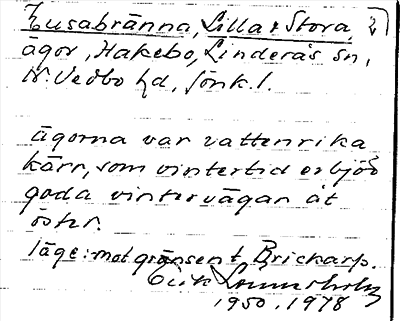 Lusabränna, Lilla & Stora, 2)
ägor, Hakebo, Linderås sn,
N. Vedbo hd, Jönk. l.
ägorna var vattenrika
kärr, som vintertid erbjöd
goda vintervägar åt
öster.
läge: mot gränsen t. Brickarp.
Erik
1950, 1978